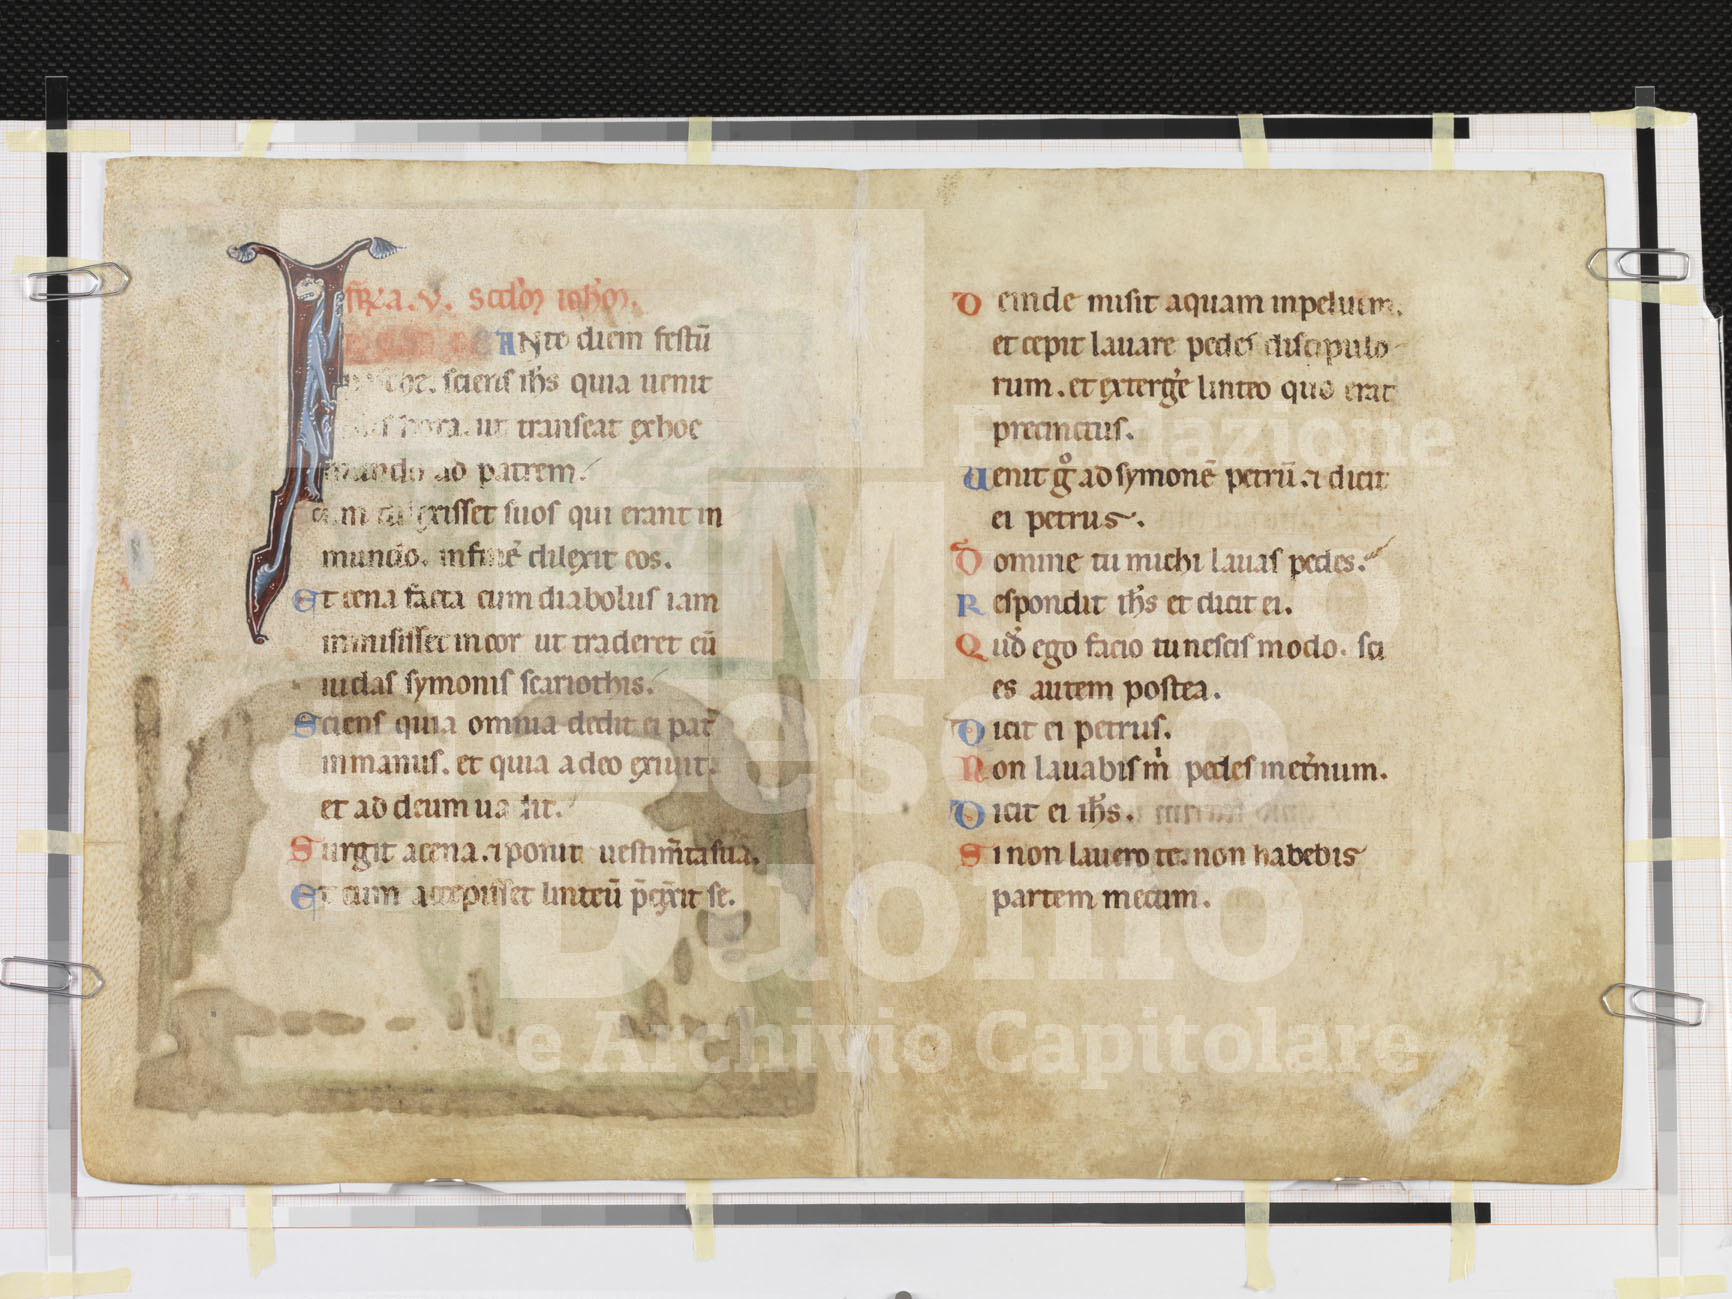 fr̄ia. v. scd̄m ioh̄em.
Ante diem festū
sciens ih̄s quia uenit
hora. ut transeat exhoc
mundo ad patrem.
cum dilexisset suos qui erant in
mundo. infinē dilexit eos.
Et cena fac̄ta cum diabolus iam
immisisset incor ut traderet eū
iudas symonis scariothis.
Sciens quia omnia dedit ei pat̄
inmanus. et quia adeo exiuit.
et ad deum uadit.
Surgit acena. ⁊ ponit uestim̄ta sua.
Et cum accepisset linteū p̄cīxit se.
Deinde misit aquam inpeluim.
et cepit lauare pedes discipulo
rum. et exterge̅ linteo quo erat
precinctus.
Uenit gͦ ad symonē petrū. ⁊ dicit
ei petrus.
Domine tu michi lauas pedes.
Respondit ih̄s et dicit ei.
Qud̄ ego facio tu nescis modo. sci
es autem postea.
Dicit ei petrus.
Non lauabis m̍ pedes inet̄num.
Dicit ei ih̄s.
Si non lauero te. non habebis
partem mecum.
Fondazione
M
Museo
Duomo
e Archivio Capitolare